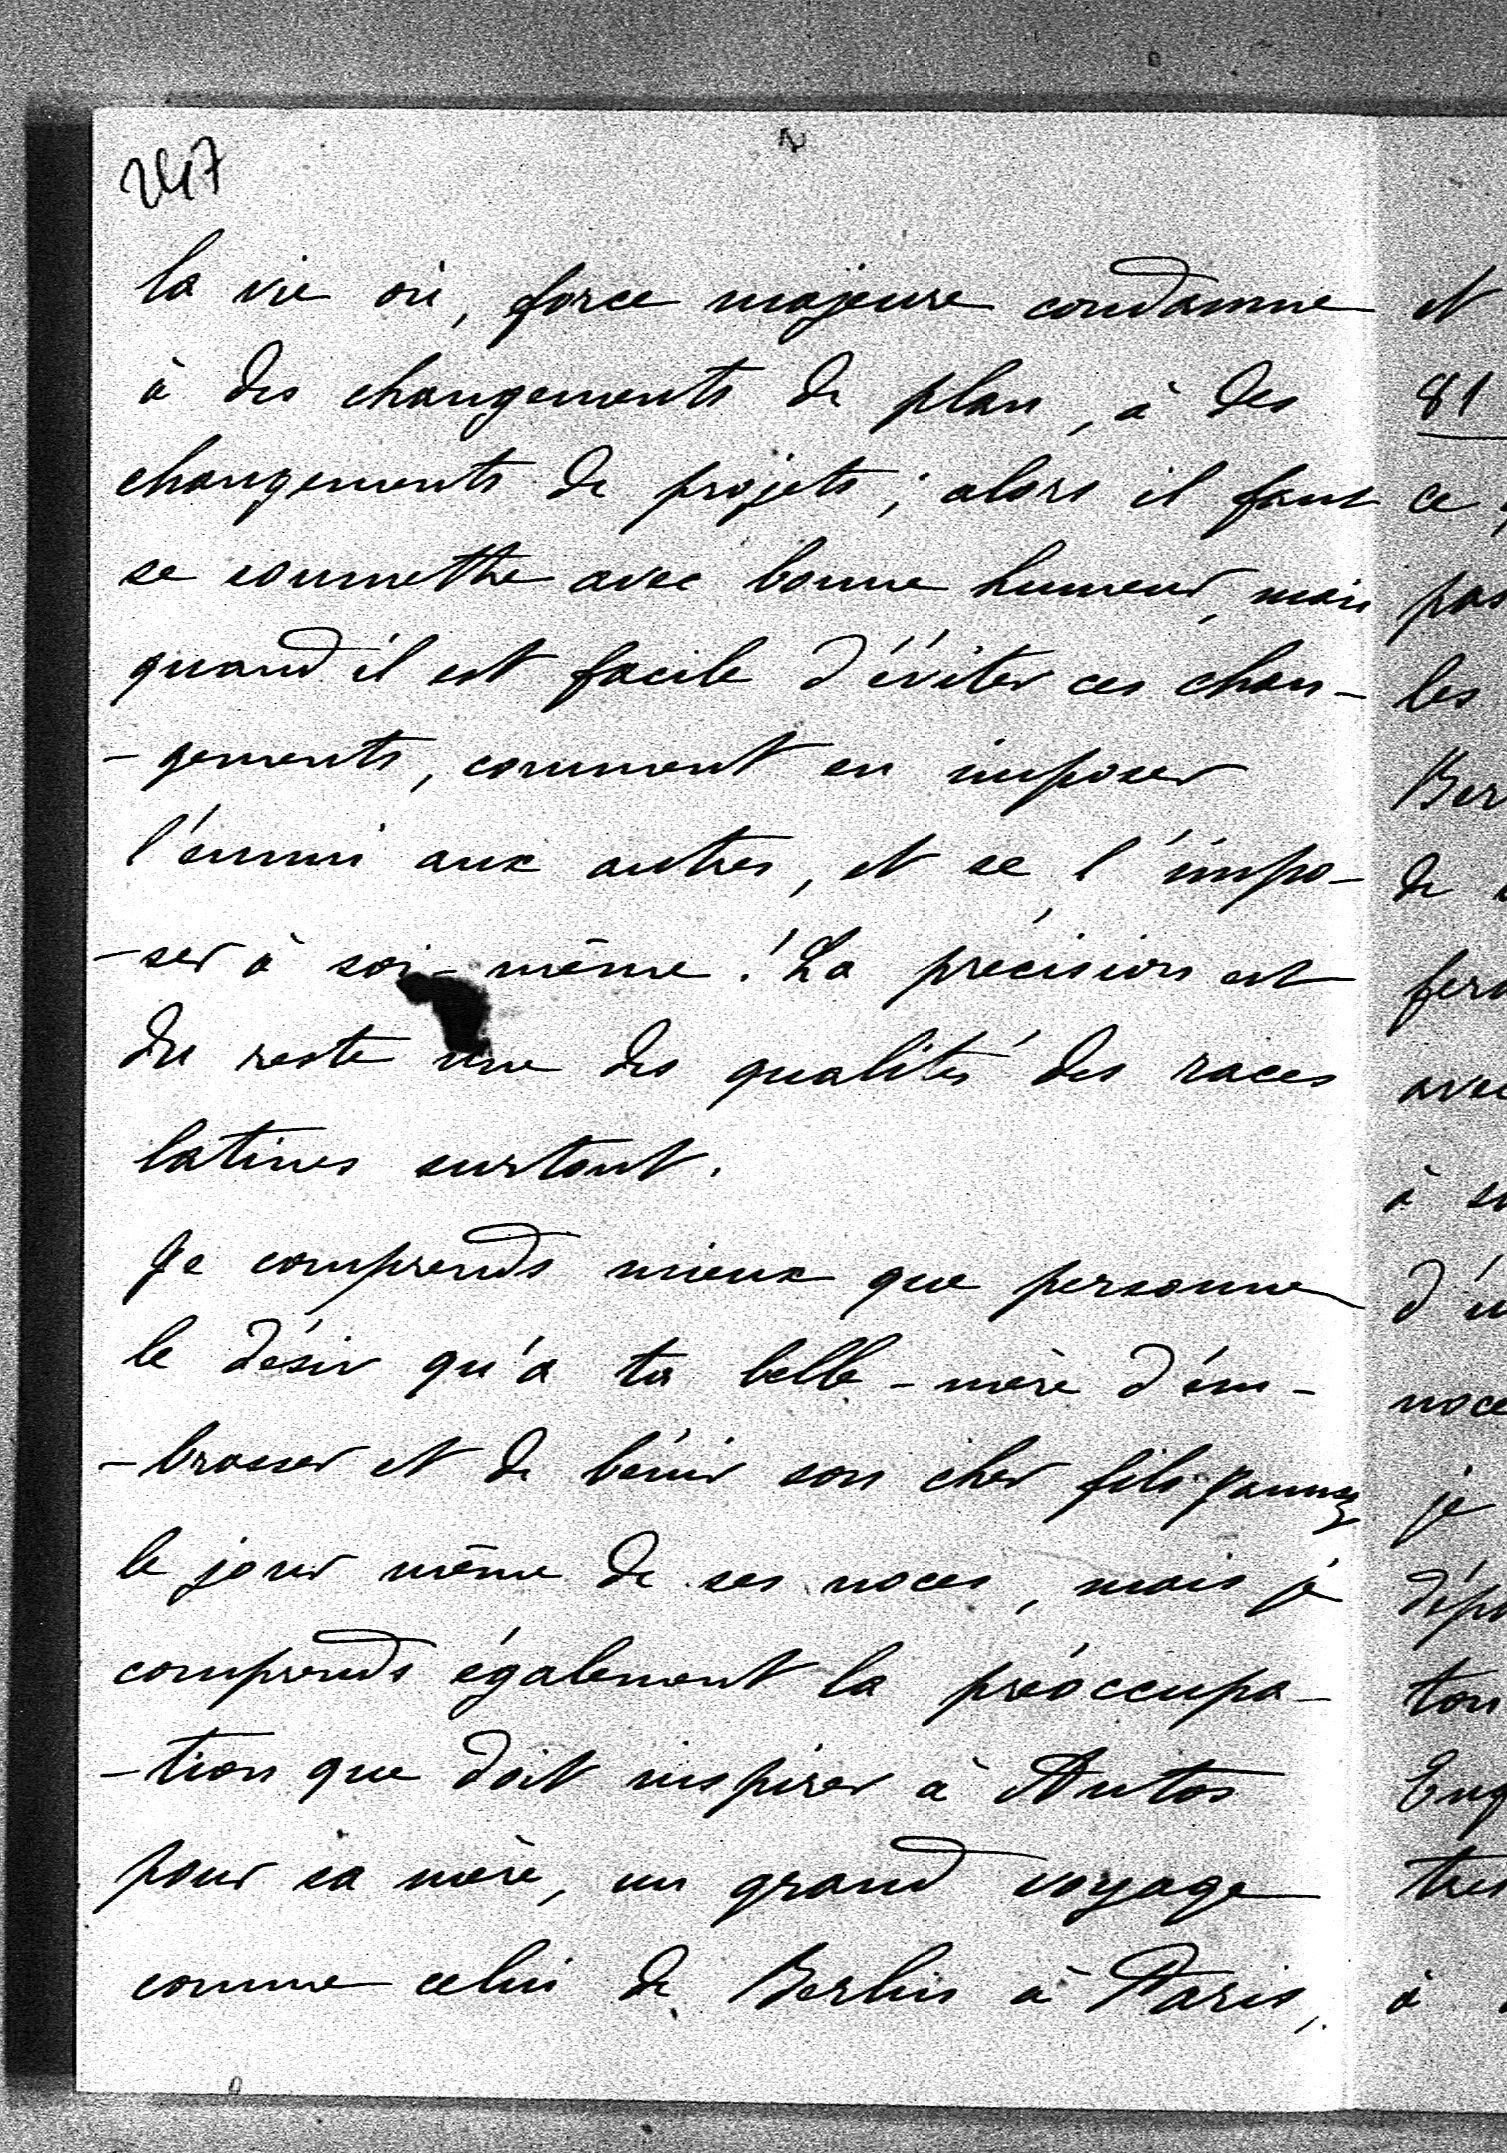 247
la vie où, force majeure condamne
à des changements de plan, à des
changements de projets ; alors il faut
se soumettre avec bonne humeur, mais
quand il est facile d'éviter ces chan-
-gements, comment en imposer
l'ennui aux autres, et se l'impo-
-ser à soi-même ! La précision est
du reste une des qualités des races
latines surtout.
Je comprends mieux que personne
le désir qu'a ta belle-mère d'em-
-brasser et de bénir son cher fils
le jour même de ses noces, mais je
comprends également la préoccupa-
-tion que doit inspirer à Antos
pour sa mère, un grand voyage
comme celui de Berlin à Paris,
et
81
ce
pas
les
Ber
de
fera
avec
à
d'u
noce
je
dépa
ton
Eug
tres
à